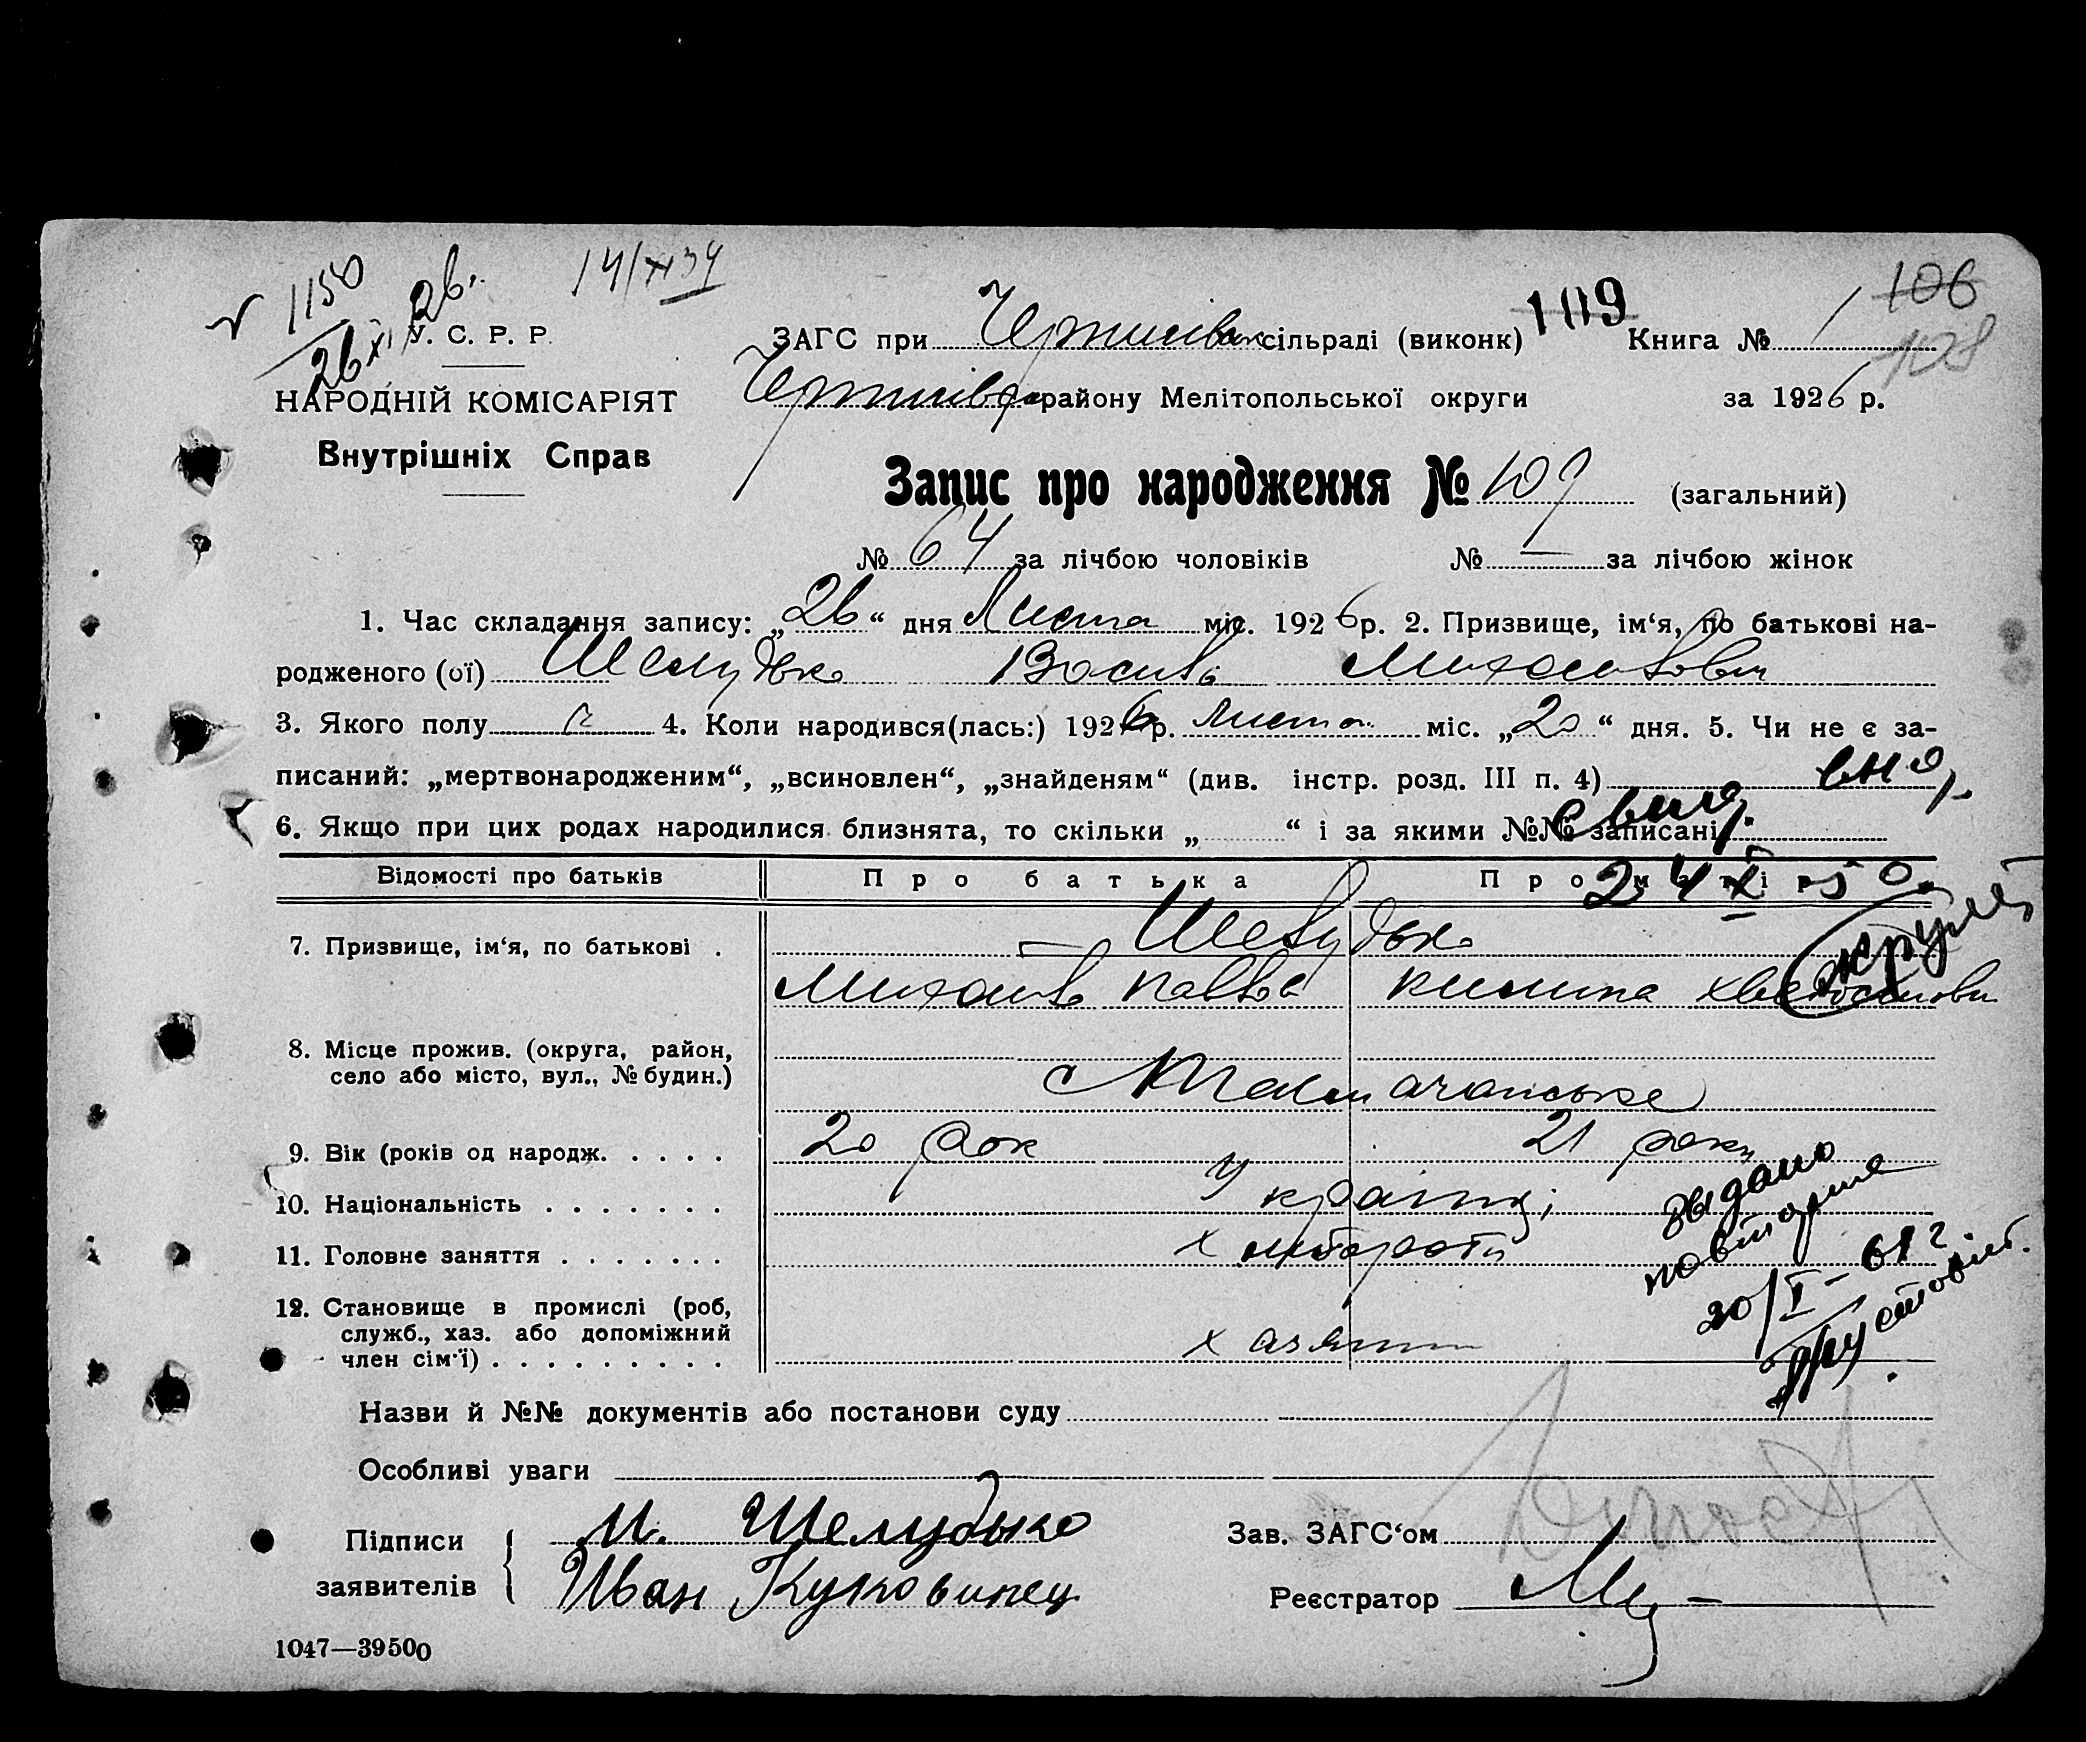 1150
26 XI 26.
14/XI 34
106
128
У. С. Р. Р.
НАРОДНІЙ КОМІСАРІЯТ
Внутрішніх Справ
ЗАГС при сільраді (виконк) 109 Книга № 1
району Мелітопольської округи за 1926 р.
Запис про народження № 109 (загальний)
№ 64 за лічбою чоловіків № — за лічбою жінок
1. Час складання запису: „26“ дня Листа міс. 1926 р. 2. Призвище, ім‘я, по батькові на-
родженого (ої) Шелудько Василь Михайлович
3. Якого полу 4. Коли народився(лась:) 1926 р. листа міс. „20“ дня. 5. Чи не є за-
писаний: „мертвонародженим“, „всиновлен“, „знайденям“ (див. інстр. розд. III п. 4)
6. Якщо при цих родах народилися близнята, то скільки „ “ і за якими №№ записані
свид.
24 X 50
Відомості про батьків Про батька Про матір
7. Призвище, ім‘я, по батькові . Шелудько
Михайло Павлов Килина
8. Місце прожив. (округа, район,
село або місто, вул., № будин.)
с
9. Вік (років од народж. . . . . 20 рок 21 роки
10. Національність . . . . . . . Україн
11. Головне заняття . . . . . . . хлібороби
12. Становище в промислі (роб,
служб., хаз. або допоміжний
член сім‘ї) . . . . . . . . .
выдано
повторное
30/I – 61 г
Назви й №№ документів або постанови суду
Особливі уваги
Підписи
заявителів
М. Шелудько
Иван Куковинец
Зав. ЗАГС‘ом
Реєстратор
1047—39500